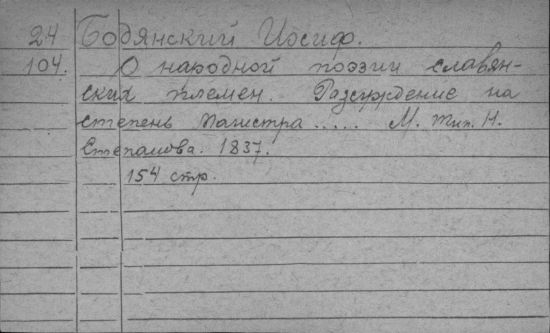 24 Бодянский Иосиф.
104. О народной поэзии славян-
ских племен. Разсуждение на
степень магистра ..... М. тип. Н.
Степанова. 1837.
154 стр.